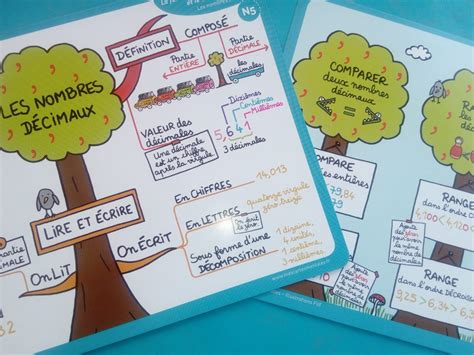 N5
DÉFINITION
COMPOSÉ
Partie
ENTIÈRE
Partie
DÉCIMALE
les
décimales
LES NOMBRES
DÉCIMAUX
VALEUR des
décimales
Une décimale
est un chiffre
après la virgule
Dixièmes
Centièmes
Millièmes
5,641
3 décimales
LIRE ET ÉCRIRE
ON LIT
ON ÉCRIT
EN CHIFFRES
14,013
EN LETTRES
quatorze virgule
zéro treize
Sous forme d'une
DÉCOMPOSITION
1 dizaine,
4 unités,
1 centième,
3 millièmes
COMPARER
deux nombres
décimaux
COMPARE
les entières
79,84
RANGE
dans l'ordre
4,100 <
RANGE
dans l'ordre DÉCROI
9,25 > 6,34 >